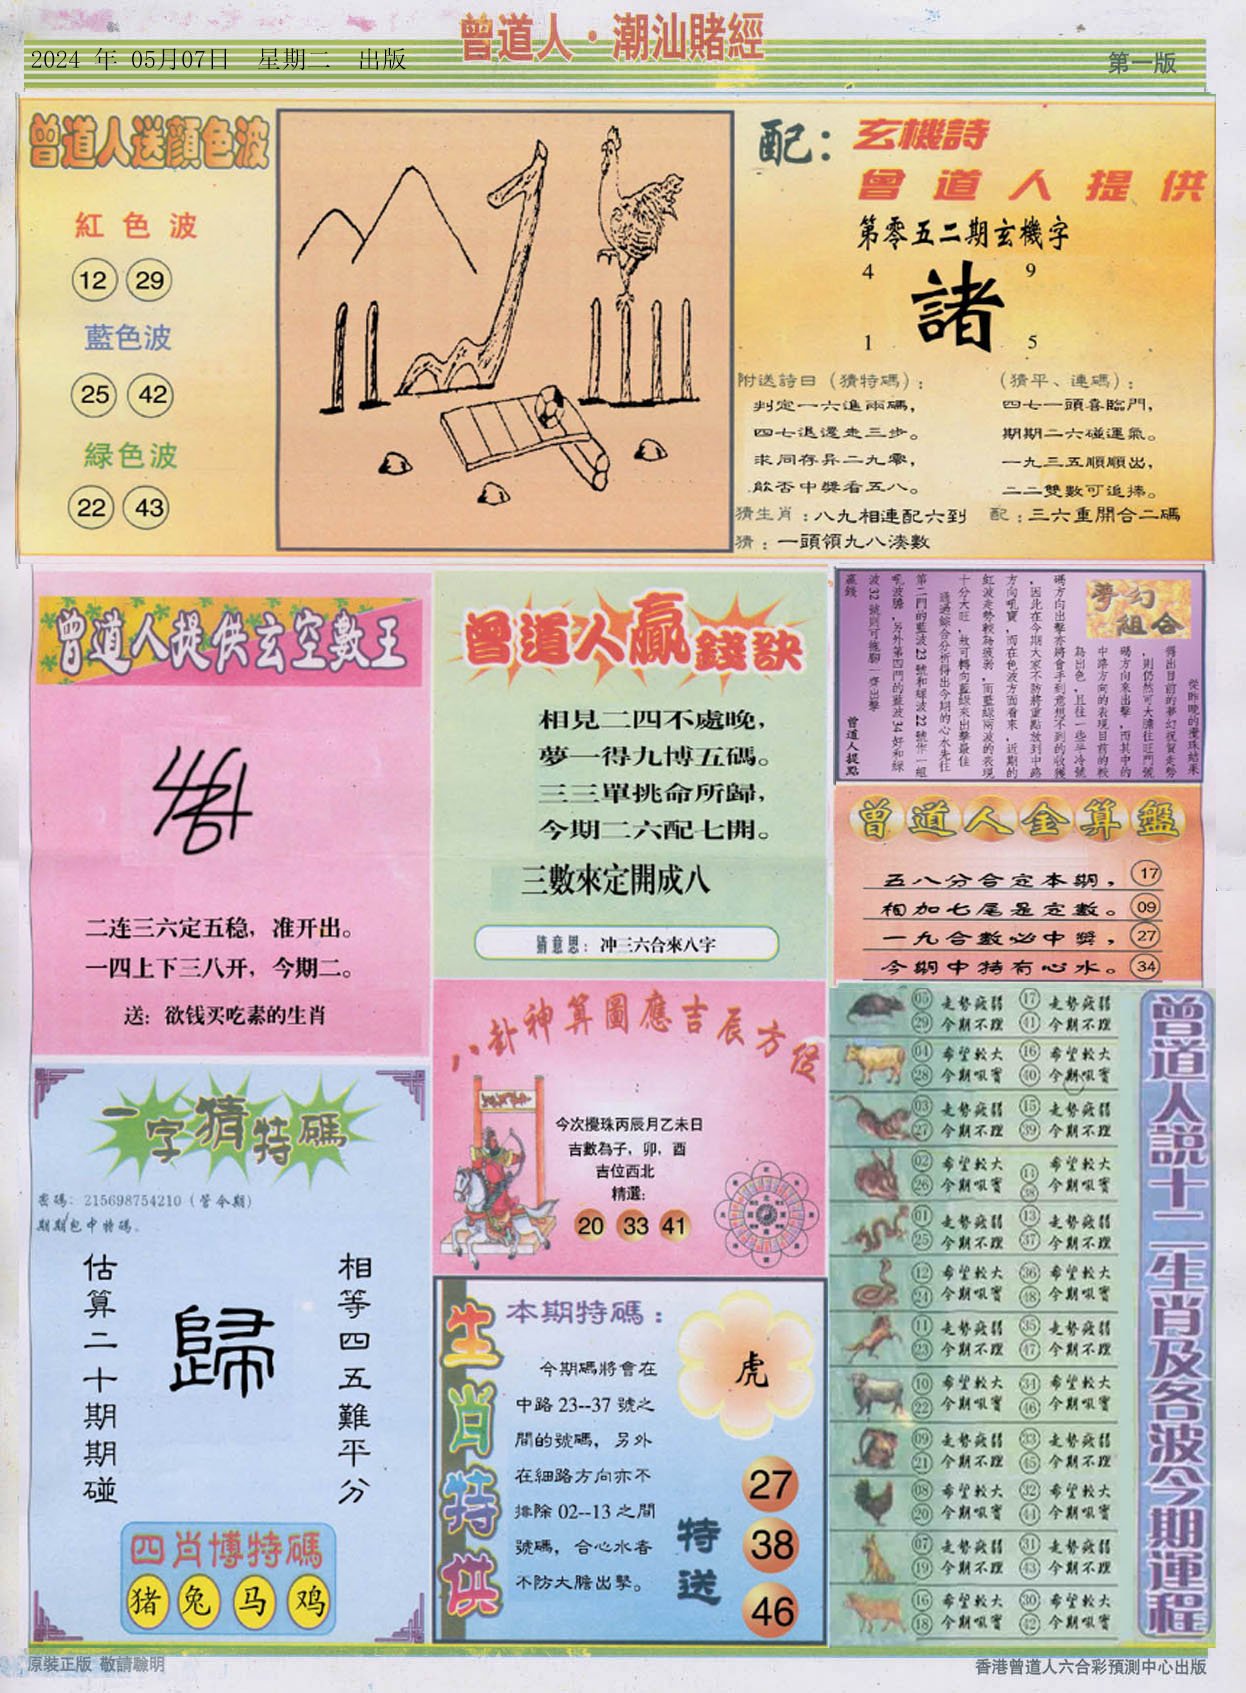 曾道人·潮汕賭經
2024 年 05月07日 星期二 出版
第一版
曾道人送顔色波
紅色波
12 29
藍色波
25 42
緑色波
22 43
配：
玄機詩
曾道人提供
第零五二期玄機字
4 9
諸
1 5
附送詩曰（猜特碼）：
判定一六進兩碼，
四七退還走三步。
求同存异二九零，
飲否中獎看五八。
（猜平、連碼）：
四七一頭喜臨門，
期期二六碰運氣。
一九三五順順出，
二二雙數可追捧。
猜生肖：八九相連配六到
配：三六重開合二碼
猜：一頭領九八湊數
曾道人提供玄空數王
二连三六定五稳，准开出。
一四上下三八开，今期二。
送：欲钱买吃素的生肖
曾道人贏錢訣
相見二四不處晚，
夢一得九博五碼。
三三單挑命所歸，
今期二六配七開。
三數來定開成八
猜意思：冲三六合來八字
夢幻組合
從昨晚的攪珠結果
得出目前的夢幻祝賀走勢
，則仍然可大膽往旺門號
碼方向來出擊，而其中的
中路方向的表現目前的較
為出色，且往一些半冷號
碼方向出擊亦將會手到意想不到的收獲
，因此在今期大家不防將重點放到中路
方向吼寶，而在色波方面看來，近期的
紅波走勢較為疲弱，而藍緑兩波的表現
十分大旺，故可轉向藍緑來出擊最佳
通過綜合分析得出今期的心水先往
第二門的藍波23號和緑波22號作一組
吼波膽，另外第四門的藍波34好和緑
波32號則可拖脚一齊出擊
贏錢
曾道人提點
曾道人金算盤
五八分合定本期， 17
相加七尾是定數。 09
一九合數必中獎， 27
今期中特有心水。 34
八卦神算圖應吉辰方位
今次攪珠丙辰月乙未日
吉數為子，卯，酉
吉位西北
精選：
20 33 41
一字猜特碼
密碼：215698754210（管今期）
期期包中特碼。
估算二十期期碰
歸
相等四五難平分
四肖博特碼
猪 兔 马 鸡
生肖特供
本期特碼：
今期碼將會在
中路23--37號之
間的號碼，另外
在細路方向亦不
排除02--13之間
號碼，合心水者
不防大膽出擊。
虎
特送
27
38
46
曾道人說十二生肖及各波今期運程
05 走勢疲弱 17 走勢疲弱
29 今期不理 41 今期不理
04 希望較大 16 希望較大
28 今期吼實 40 今期吼實
03 走勢疲弱 15 走勢疲弱
27 今期不理 39 今期不理
02 希望較大 14 希望較大
26 今期吼實 38 今期吼實
01 走勢疲弱 13 走勢疲弱
25 今期不理 37 今期不理
12 希望較大 36 希望較大
24 今期吼實 48 今期吼實
11 走勢疲弱 35 走勢疲弱
23 今期不理 47 今期不理
10 希望較大 34 希望較大
22 今期吼實 46 今期吼實
09 走勢疲弱 33 走勢疲弱
21 今期不理 45 今期不理
08 希望較大 32 希望較大
20 今期吼實 44 今期吼實
07 走勢疲弱 31 走勢疲弱
19 今期不理 43 今期不理
16 希望較大 30 希望較大
18 今期吼實 42 今期吼實
原裝正版 敬請聰明
香港曾道人六合彩預測中心出版